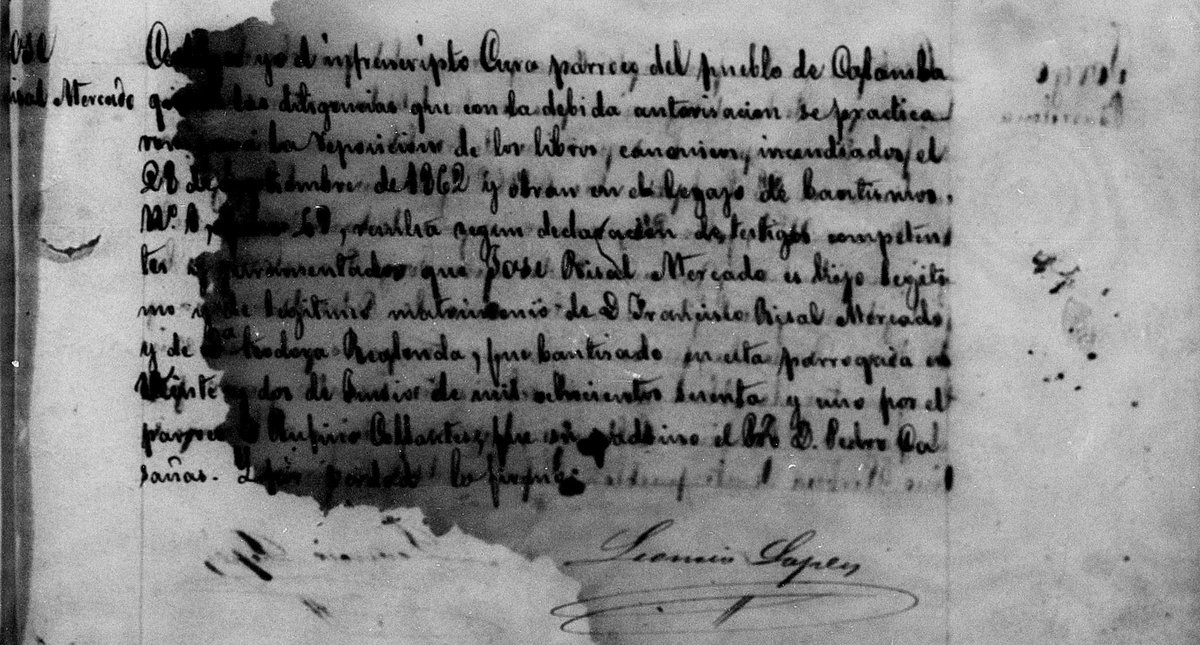 ose
isal Mercado
yo el infrascripto Cura parroco del pueblo de Calamba
las diligencias que con la debida autorisacion se practica
ron la reposicion de los libros canonicos, incendiados el
28 de de 1862 y obran en el Legajo de bautismos,
Nº 1, resulta segun declaracion de testigos competen
tes y juramentados que Jose Risal Mercado es hijo legiti
mo y de legitimo matrimonio de D Francisco Risal Mercado
y de Dª Teodora Realonda, fue bautisado en esta parroquia en
veinte y dos de Junio de mil ochocientos sesenta y uno por el
parroco Rufino Collantes, fue su padrino el Pbo D. Pedro Ca
sañas. lo firmo.
Leoncio Lopez